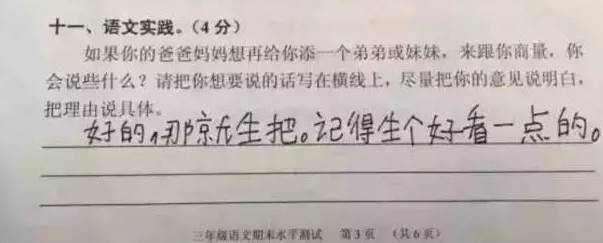 十一、语文实践。(4分)
如果你的爸爸妈妈想再给你添一个弟弟或妹妹，来跟你商量，你
会说些什么？请把你想要说的话写在横线上，尽量把你的意见说明白，
把理由说具体。
好的，那就生把。记得生个好看一点的。
三年级语文期末水平测试 第3页 (共6页)